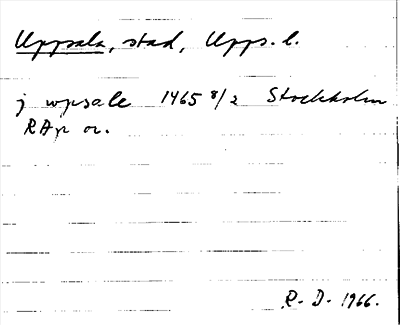 Uppsala, stad, Upps. l.
j wpsale 1465 8/2 Stockholm
RAp or.
R. D. 1966.